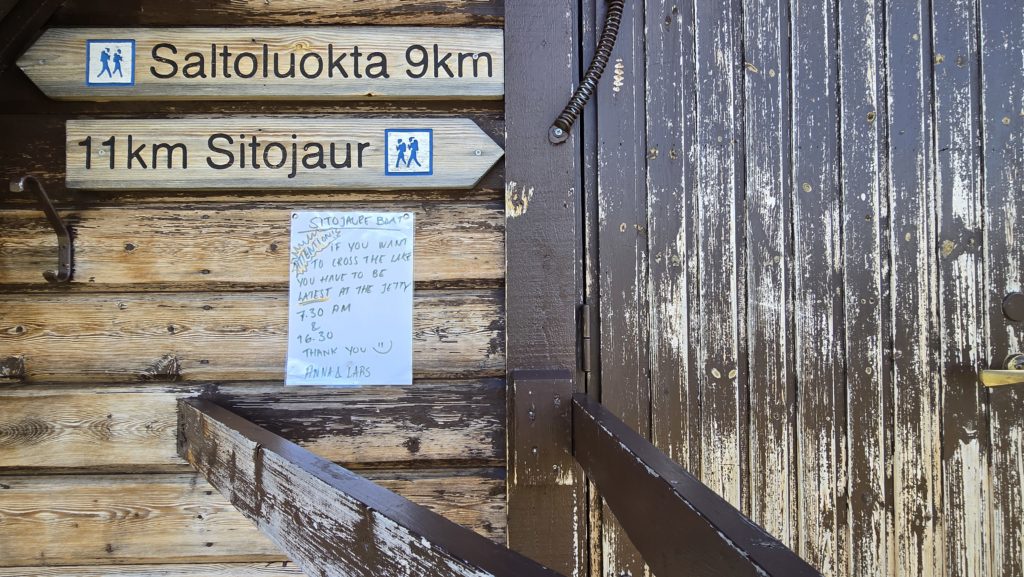 Saltoluokta 9km
11km Sitojaur
SITOJAURE BOAT
ATTENTION!!
IF YOU WANT
TO CROSS THE LAKE
YOU HAVE TO BE
LATEST AT THE JETTY
7.30 AM
&
16.30
THANK YOU
ANNA & LARS